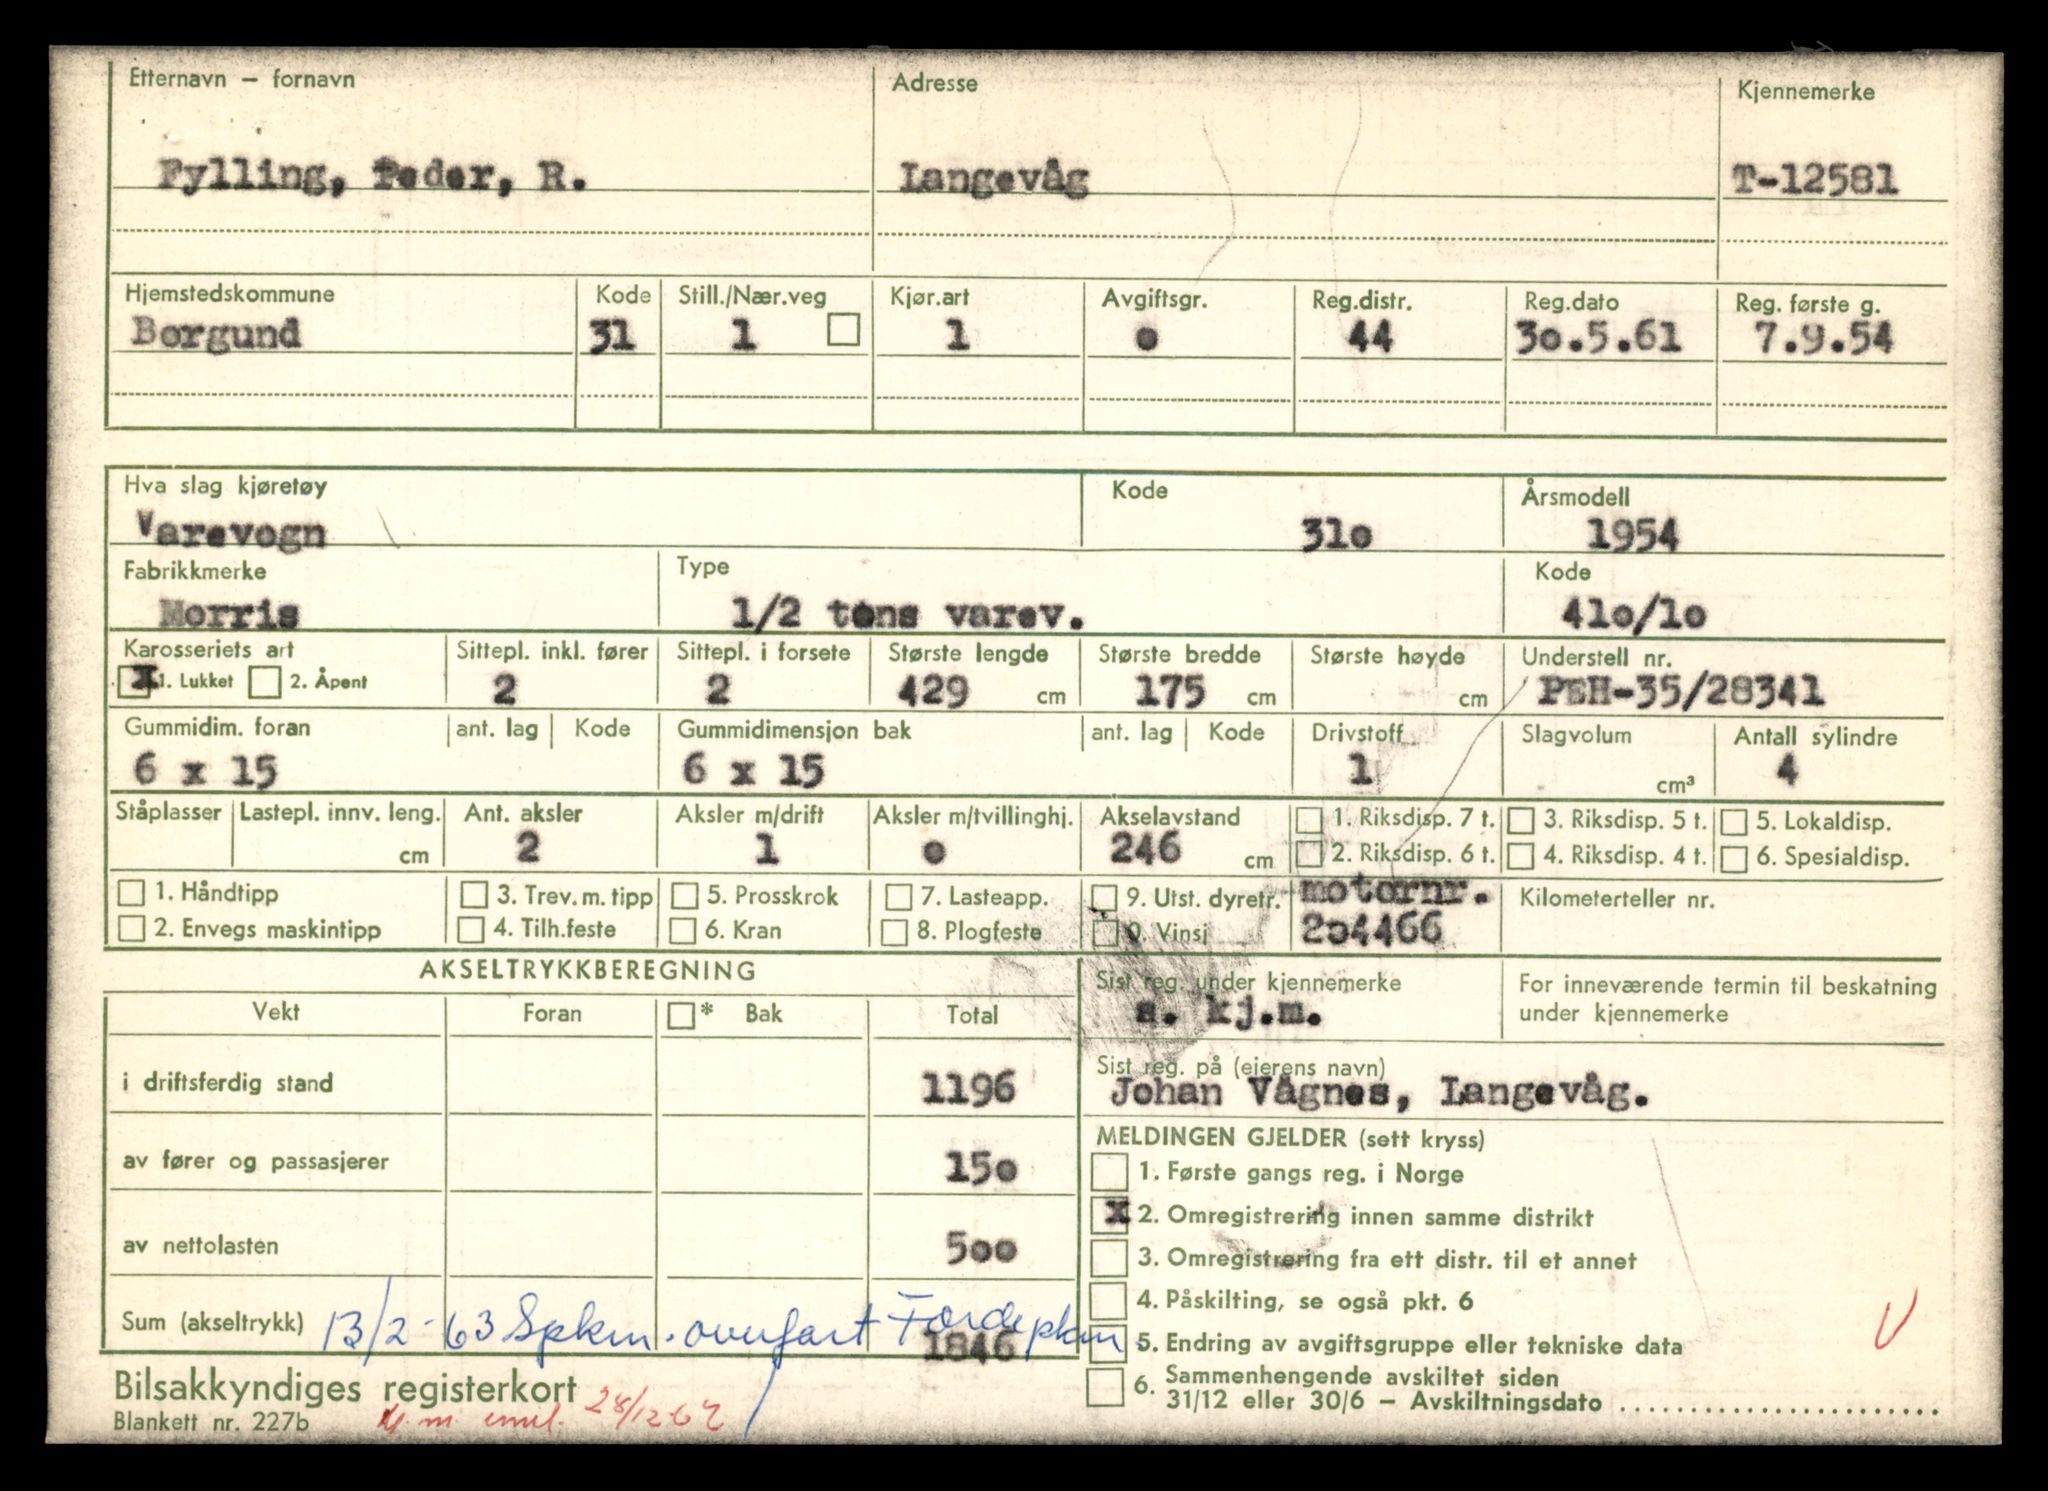 Etternavn – fornavn Adresse Kjennemerke
Fylling, Peder, R. Langevåg T-12581
Hjemstedskommune Kode Still./Nær.veg Kjør.art Avgiftsgr. Reg.distr. Reg.dato Reg. første g.
Borgund 31 1 1 o 44 3o.5.61 7.9.54
Hva slag kjøretøy Kode Årsmodell
Varevogn 31o 1954
Fabrikkmerke Type Kode
Morris 1/2 tons varev. 41o/1o
Karosseriets art Sittepl. inkl. fører Sittepl. i forsete Største lengde Største bredde Største høyde Understell nr.
x 1. Lukket 2. Åpent 2 2 429 cm 175 cm cm PEH-35/28341
Gummidim. foran ant. lag Kode Gummidimensjon bak ant. lag Kode Drivstoff Slagvolum Antall sylindre
6 x 15 6 x 15 1 cm³ 4
Ståplasser Lastepl. innv. leng. Ant. aksler Aksler m/drift Aksler m/tvillinghj. Akselavstand 1. Riksdisp. 7 t. 3. Riksdisp. 5 t. 5. Lokaldisp.
cm 2 1 o 246 cm 2. Riksdisp. 6 t. 4. Riksdisp. 4 t. 6. Spesialdisp.
1. Håndtipp 3. Trev. m. tipp 5. Prosskrok 7. Lasteapp. 9. Utst. dyretr. motornr. Kilometerteller nr.
2. Envegs maskintipp 4. Tilh.feste 6. Kran 8. Plogfeste 0. Vinsj 2o4466
AKSELTRYKKBEREGNING
Vekt Foran * Bak Total
i driftsferdig stand 1196
av fører og passasjerer 15o
av nettolasten 5oo
Sum (akseltrykk) 13/2-63 Spkm. overført Førdepkm 1846
Sist reg. under kjennemerke For inneværende termin til beskatning
under kjennemerke
a. kj.m.
Sist reg. på (eierens navn)
Johan Vågnes, Langevåg.
MELDINGEN GJELDER (sett kryss)
1. Første gangs reg. i Norge
x 2. Omregistrering innen samme distrikt
3. Omregistrering fra ett distr. til et annet
4. Påskilting, se også pkt. 6
5. Endring av avgiftsgruppe eller tekniske data
6. Sammenhengende avskiltet siden
31/12 eller 30/6 – Avskiltningsdato
Bilsakkyndiges registerkort
Blankett nr. 227b
28/12-62